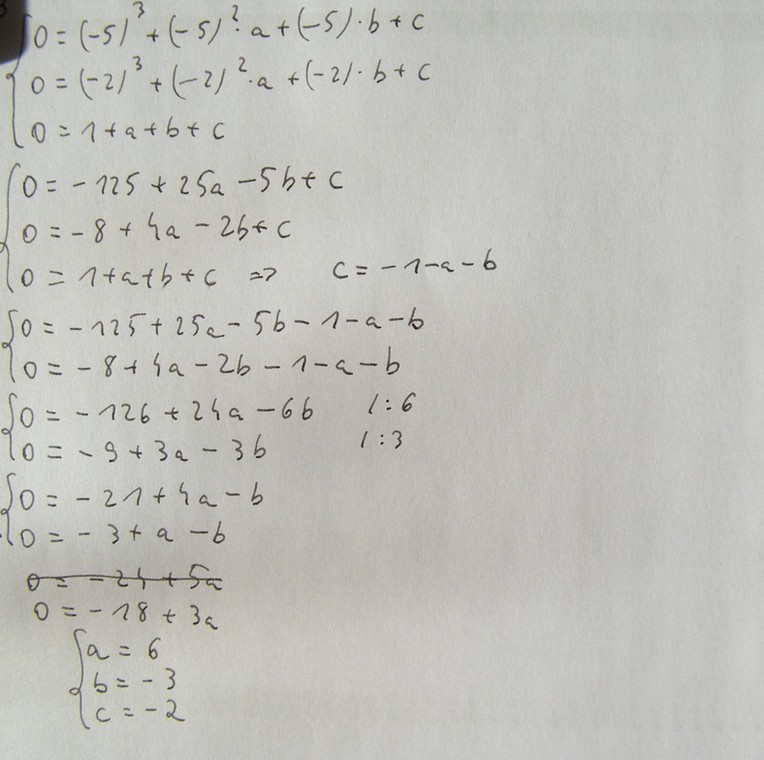 0 = (-5)³ + (-5)² · a + (-5) · b + c
0 = (-2)³ + (-2)² · a + (-2) · b + c
0 = 1 + a + b + c
0 = - 125 + 25a - 5b + c
0 = - 8 + 4a - 2b + c
0 = 1 + a + b + c => c = - 1 - a - b
0 = - 125 + 25a - 5b - 1 - a - b
0 = - 8 + 4a - 2b - 1 - a - b
0 = - 126 + 24a - 6b /:6
0 = - 9 + 3a - 3b /:3
0 = - 21 + 4a - b
0 = - 3 + a - b
0 = - 24 + 5a
0 = - 18 + 3a
a = 6
b = - 3
c = - 2